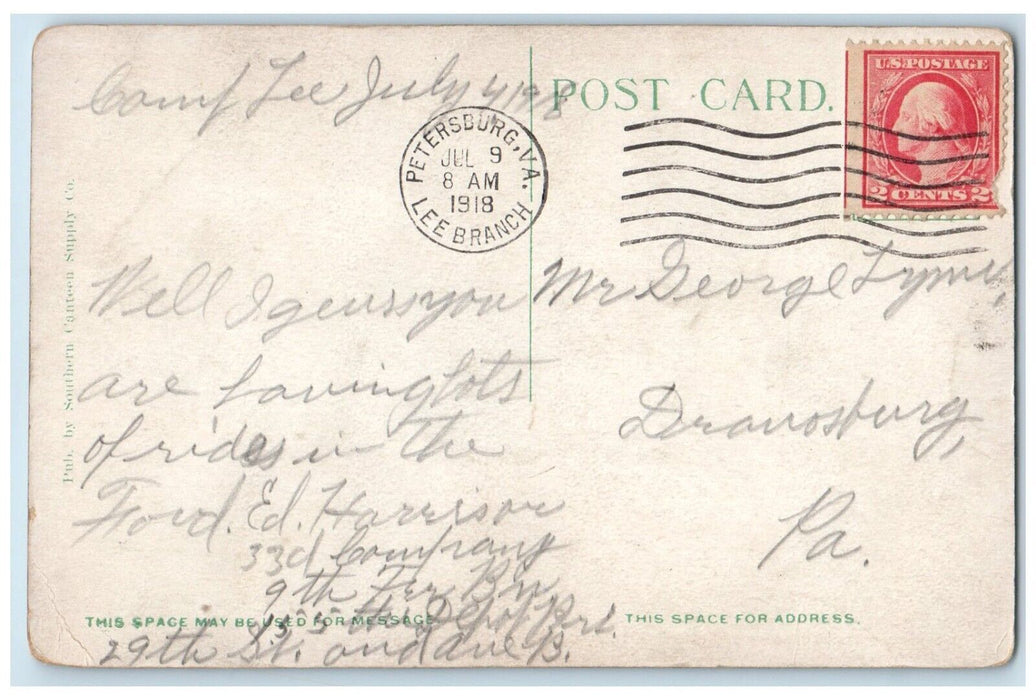 Camp Lee July 4, 1918
POST CARD.
U.S. POSTAGE
2 CENTS 2
PETERSBURG, VA.
JUL 9
8 AM
1918
LEE BRANCH
Pub. by Southern Canteen Supply Co.
Well I geuss you
are having lots
of rides in the
Ford. Ed. Harrison
33d Company
9th Bn
155th Depot
29th St. and Ave B.
THIS SPACE MAY BE USED FOR MESSAGE
Mr George
Dravosburg,
Pa.
THIS SPACE FOR ADDRESS.